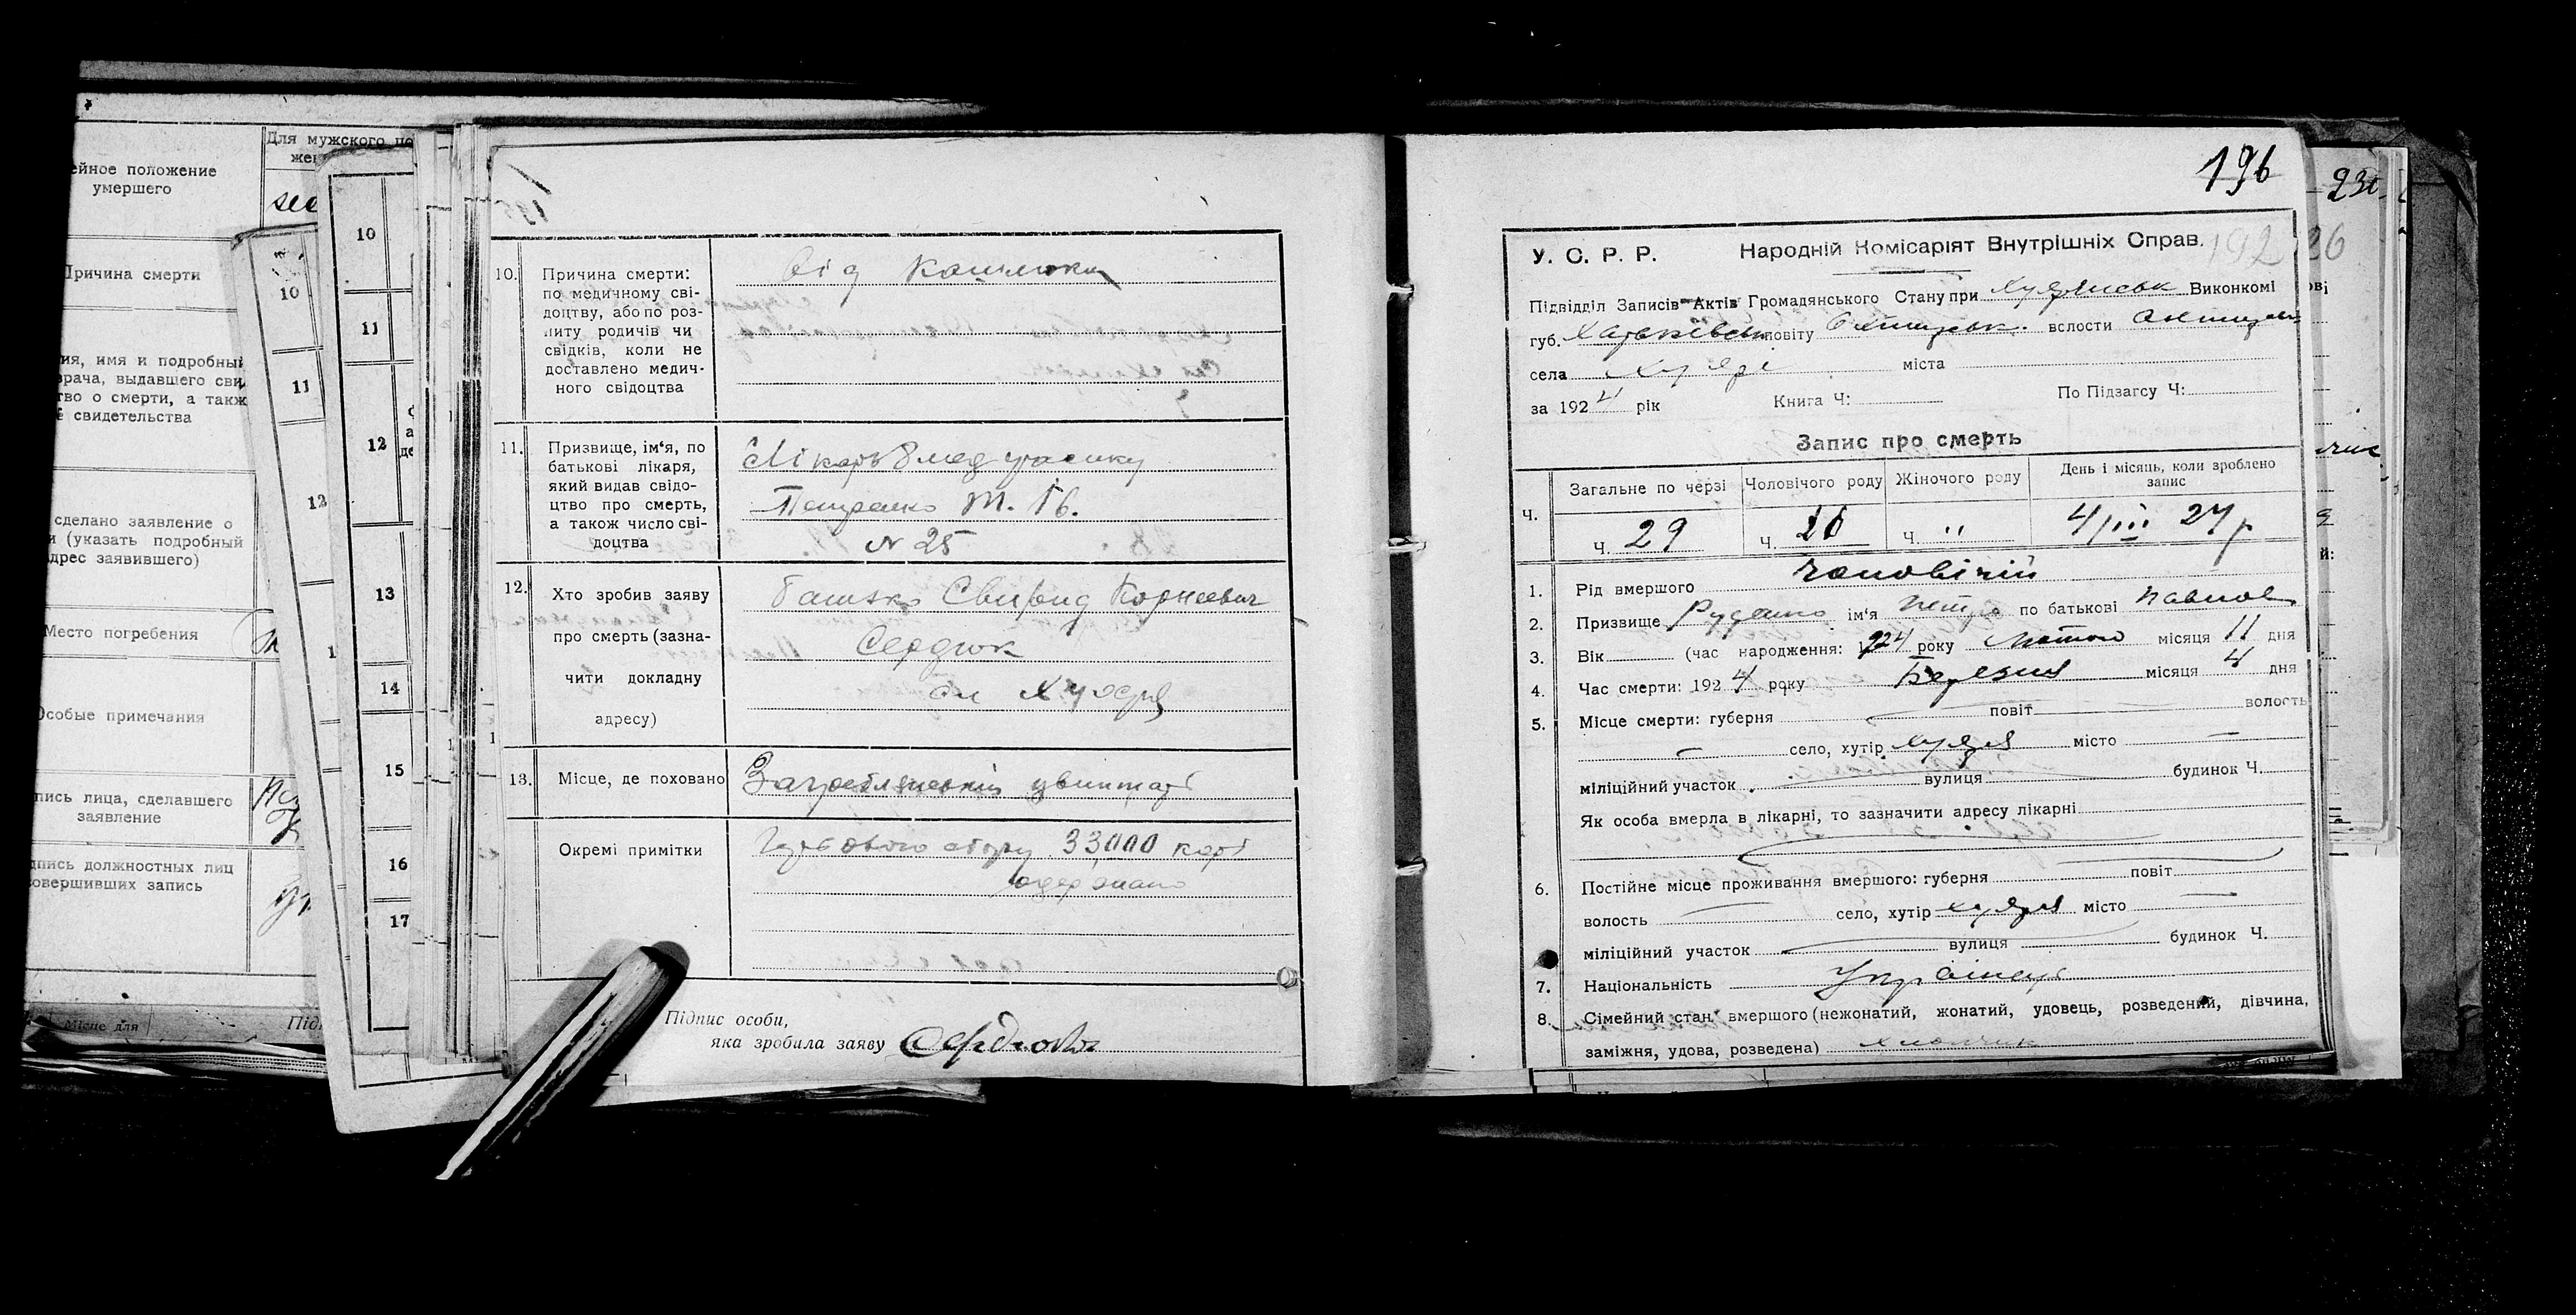 Для мужского по
жен
ейное положение
умершего
Причина смерти
ия, имя и подробный
врача, выдавшего сви
тво о смерти, а такж
е свидетельства
сделано заявление о
и (указать подробный
дрес заявившего)
Место погребения
Особые примечания
пись лица, сделавшего
заявление
дпись должностных лиц
совершивших запись
Місце для
Підп
10
11
12
10
11
12
13
14
15
16
17
195
10. Причина смерти:
по медичному сві-
доцтву, або по роз-
питу родичів чи
свідків, коли не
доставлено медич-
ного свідоцтва
від Кашлюки
11. Призвище, ім'я, по
батькові лікаря,
який видав свідо-
цтво про смерть,
а також число сві-
доцтва
Лікарь 8 мед участку
Петренко М. Ів.
N 25
12. Хто зробив заяву
про смерть (зазна-
чити докладну
адресу)
батько Свирид Корнеевич
Сердюк
сл Хухря
13. Місце, де поховано
цвинтарі
Окремі примітки
Гербового збору 33000 карб
одержано
Підпис особи,
яка зробила заяву Сердюк
196
У. С. Р. Р. Народній Комісаріят Внутрішніх Справ.
192
Підвідділ Записів Актів Громадянського Стану при Хухрянськ Виконкомі
губ. Харьківськ повіту Охтирськ. волости Охтирськ
села Хухрі міста
за 1924 рік Книга Ч: По Підзагсу Ч:
Запис про смерть
Ч. Загальне по черзі Чоловічого роду Жіночого роду День і місяць, коли зроблено
запис
Ч. 29 Ч. Ч. " 4/III 24 р
1. Рід вмершого Чоловічій
2. Призвище Руденко ім'я Петро по батькові Павлов
3. Вік (час народження: 1924 року Лютого місяця 11 дня
4. Час смерти: 1924 року Березня місяця 4 дня
5. Місце смерти: губерня повіт волость
село, хутір Хухря місто
міліційний участок вулиця будинок Ч.
Як особа вмерла в лікарні, то зазначити адресу лікарні
6. Постійне місце проживання вмершого: губерня повіт
волость село, хутір Хухря місто
міліційний участок вулиця будинок Ч.
7. Національність Українець
8. Сімейний стан вмершого (нежонатий, жонатий, удовець, розведений, дівчина,
заміжня, удова, розведена) хлопчик